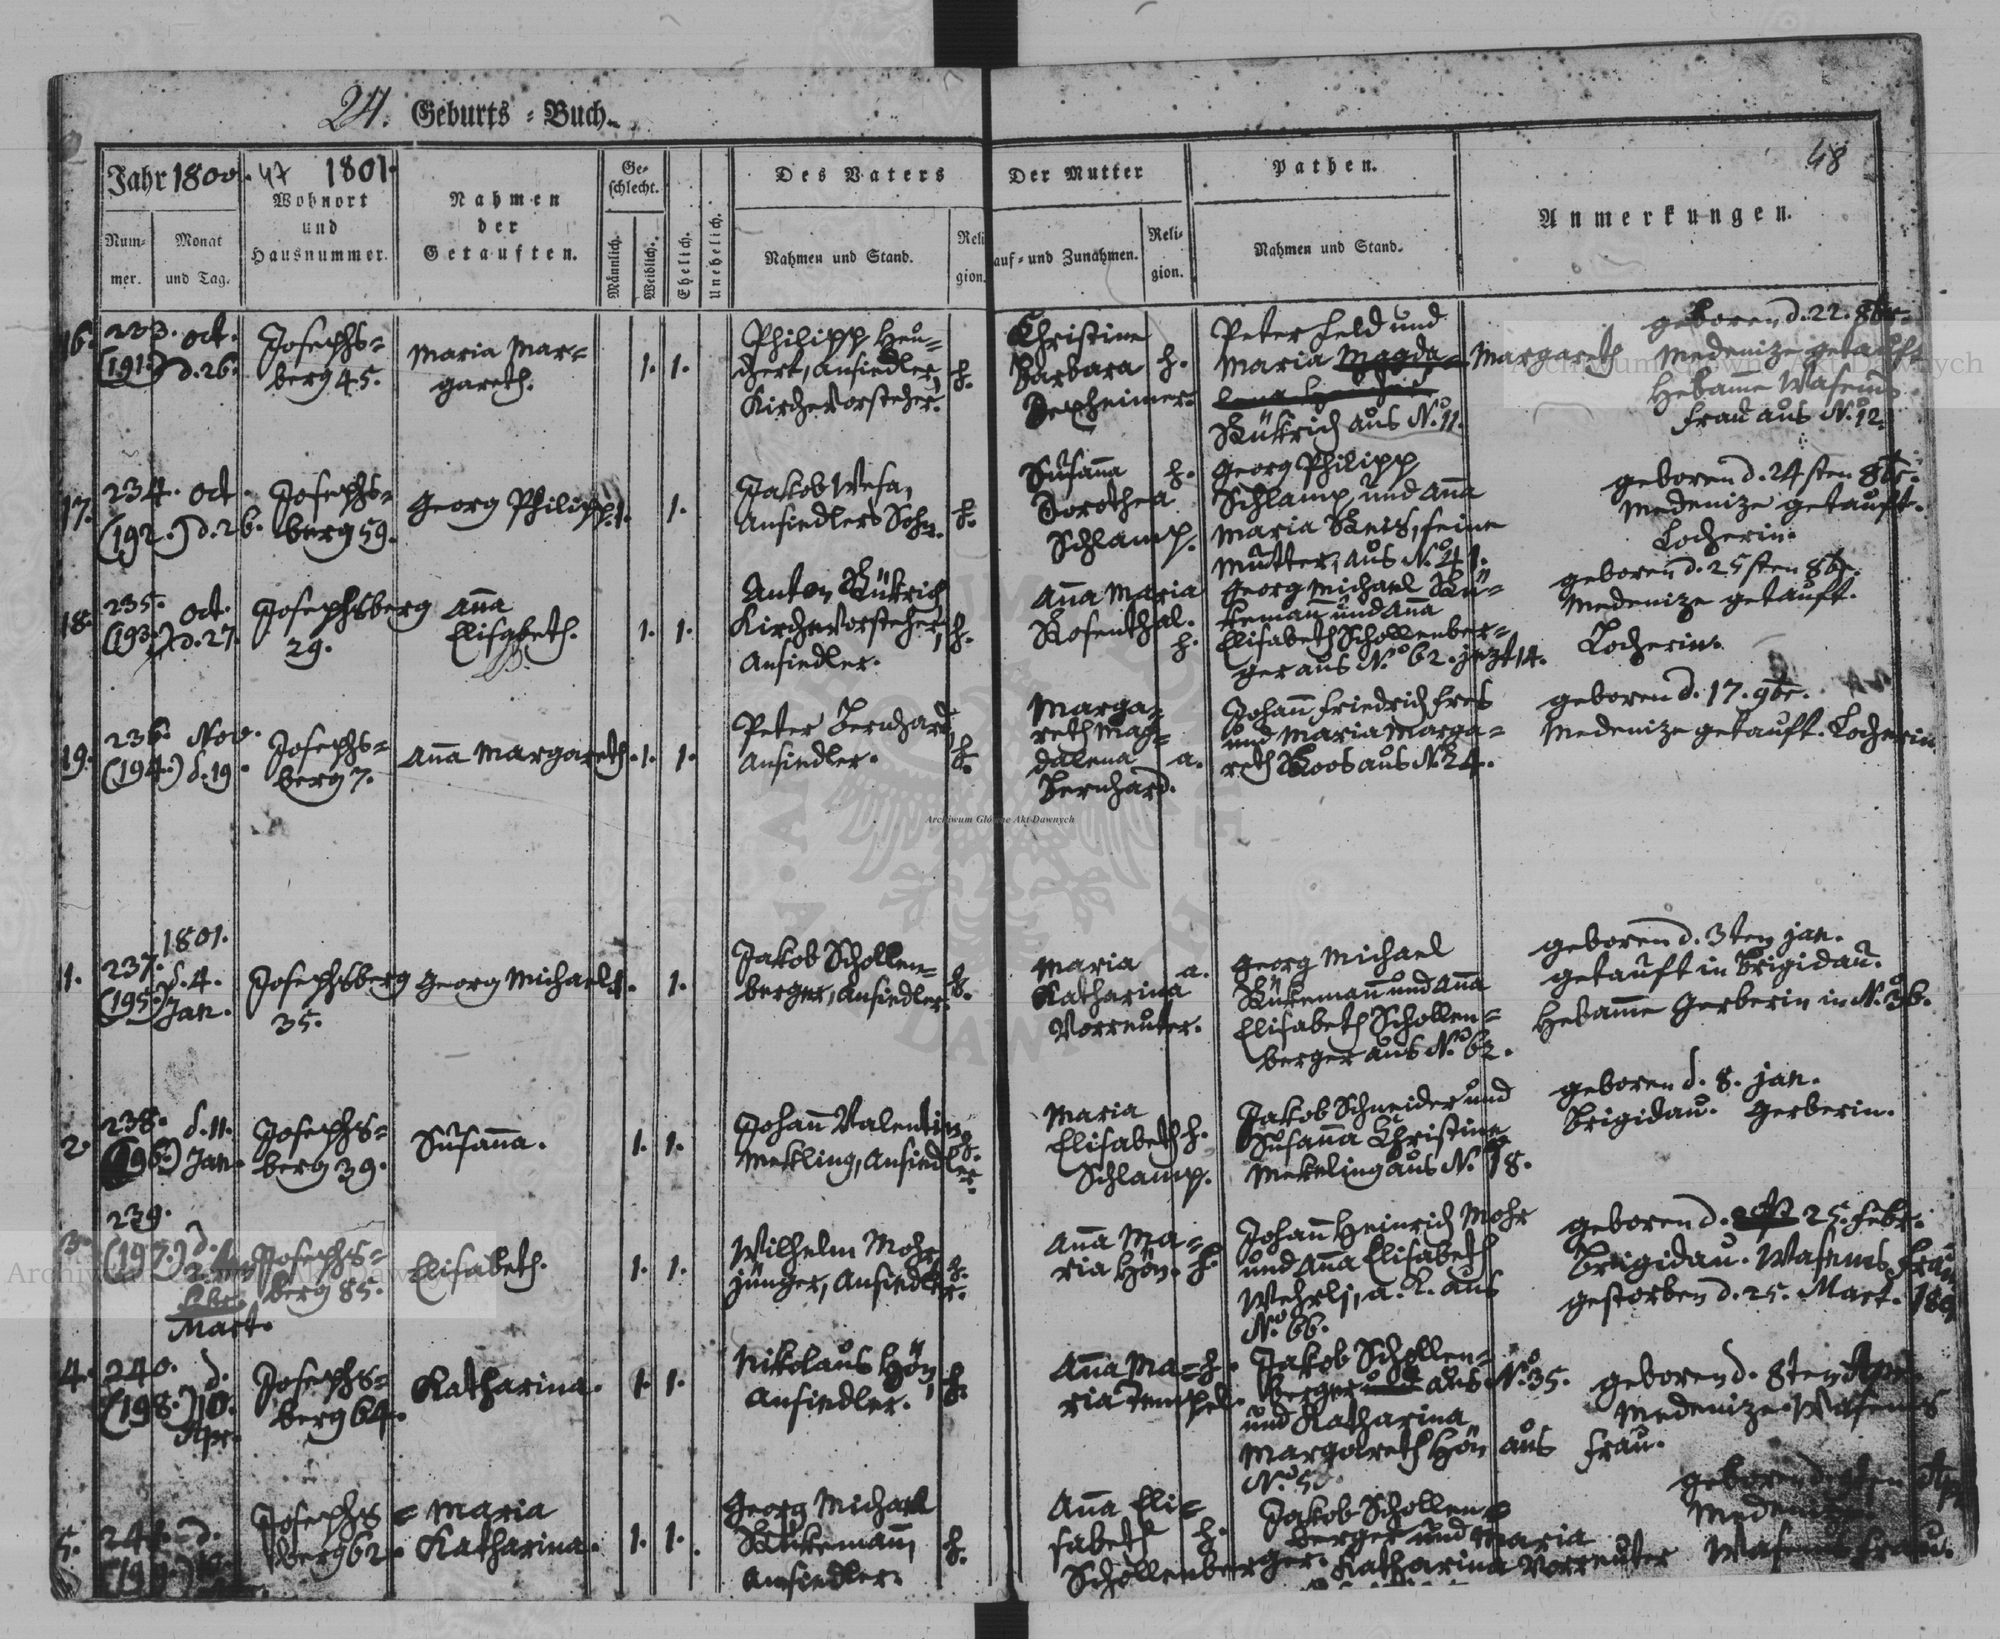 24. Geburts = Buch.
48
Jahr 1800. 47 1801.
Wohnort
und
Hausnummer.
Num=
mer.
Monat
und Tag.
Nahmen
der
Getauften.
Ge=
schlecht.
Männlich.
Weiblich.
Ehelich.
Unehelich.
Des Vaters
Nahmen und Stand.
Reli
gion.
Der Mutter
auf= und Zunahmen.
Reli=
gion.
Pathen.
Nahmen und Stand.
Anmerkungen.
16. 233. Oct.
(191.) d. 26.
Josephs=
berg 45.
Maria Mar=
gareth.
1. 1.
Philipp Heu=
chert, Ansiedler,
Kirchevorsteher.
h.
Christine
Barbara h.
Dexheimer.
Peter Feld und
Maria Magda= Margareth
lena
Rükrich aus N.º 11.
geboren d. 22. 8br.
Medenize getauft
Hebame Wasems
Frau aus N.º 12.
17. 234. Oct.
(192.) d. 26.
Josephs=
berg 59.
Georg Philipp.
1. 1.
Jakob Wesa,
Ansiedlers Sohn.
h.
Susana h.
Dorothea
Schlamp.
Georg Philipp
Schlamp, und Ana
Maria Reis, seine
Mutter, aus N.º 41.
geboren d. 24sten 8br.
Medenize getauft.
Locherin.
18. 235. Oct.
(193.) d. 27.
Josephsberg
29.
Ana
Elisabeth.
1. 1.
Anton Rükrich
Kirchevorsteher,
Ansiedler.
h.
Ana Maria
Rosenthal.
h.
Georg Michael Rü=
kemann und Ana
Elisabeth Schollenber=
ger aus N.º 62. jezt 14.
geboren d. 25sten 8br.
Medenize getauft.
Locherin.
19. 236. Nov.
(194.) d. 19.
Josephs=
berg 7.
Ana Margareth.
1. 1.
Peter Bernhard,
Ansiedler.
h.
Marga=
reth Mag=
dalena a.
Bernhard.
Johann Friedrich Fres
und Maria Marga=
reth Roos aus N.º 24.
geboren d. 17. 9br.
Medenize getauft. Locherin
1801.
1. 237. d. 4.
(195.) Jan.
Josephsberg
35.
Georg Michael.
1. 1.
Jakob Schollen=
berger, Ansiedler.
h.
Maria a.
Katharina
Vorreuter.
Georg Michael
Rükemann und Ana
Elisabeth Schollen=
berger aus N.º 62.
geboren d. 3ten Jan.
getauft in Brigidau.
Hebame Gerberin in N.º 36.
2. 238. d. 11.
(196.) Jan.
Josephs=
berg 39.
Susanna.
1. 1.
Johann Valentin
Mekling, Ansiedler.
h.
Maria
Elisabeth h.
Schlamp.
Jakob Schneider und
Susana Christine
Mekeling aus N.º 18.
geboren d. 8. Jan.
Brigidau. Gerberin.
3. 239.
(197.) d.
Mart.
Josephs=
berg 85.
Elisabeth.
1. 1.
Wilhelm Mohr
jünger, Ansiedler.
h.
Ana Ma=
ria Hön. h.
Johann Heinrich Mohr
und Ana Elisabeth
Wehrli, a. L. aus
N.º 66.
geboren d. 25. Febr.
Brigidau. Wasems Frau
gestorben d. 25. Mart.
4. 240. d.
(198.) 10.
Apr.
Josephs=
berg 64.
Katharina.
1. 1.
Nikolaus Hön,
Ansiedler.
h.
Ana Ma= h.
ria Tempel.
Jakob Schollen=
berger aus N.º 35.
und Katharina
Margareth Hön aus
geboren d. 8ten Apr.
Medenize. Wasems
Frau.
5.
Josephs=
berg 62.
Maria
Katharina.
1. 1.
Georg Michael
Rükemann,
Ansiedler.
h.
Ana Eli=
sabeth h.
Schollenberger.
Jakob Schollen=
berger und Maria
Katharina Vorreuter
geboren d.
Medenize.
Wasems Frau.
Archiwum Główne Akt Dawnych